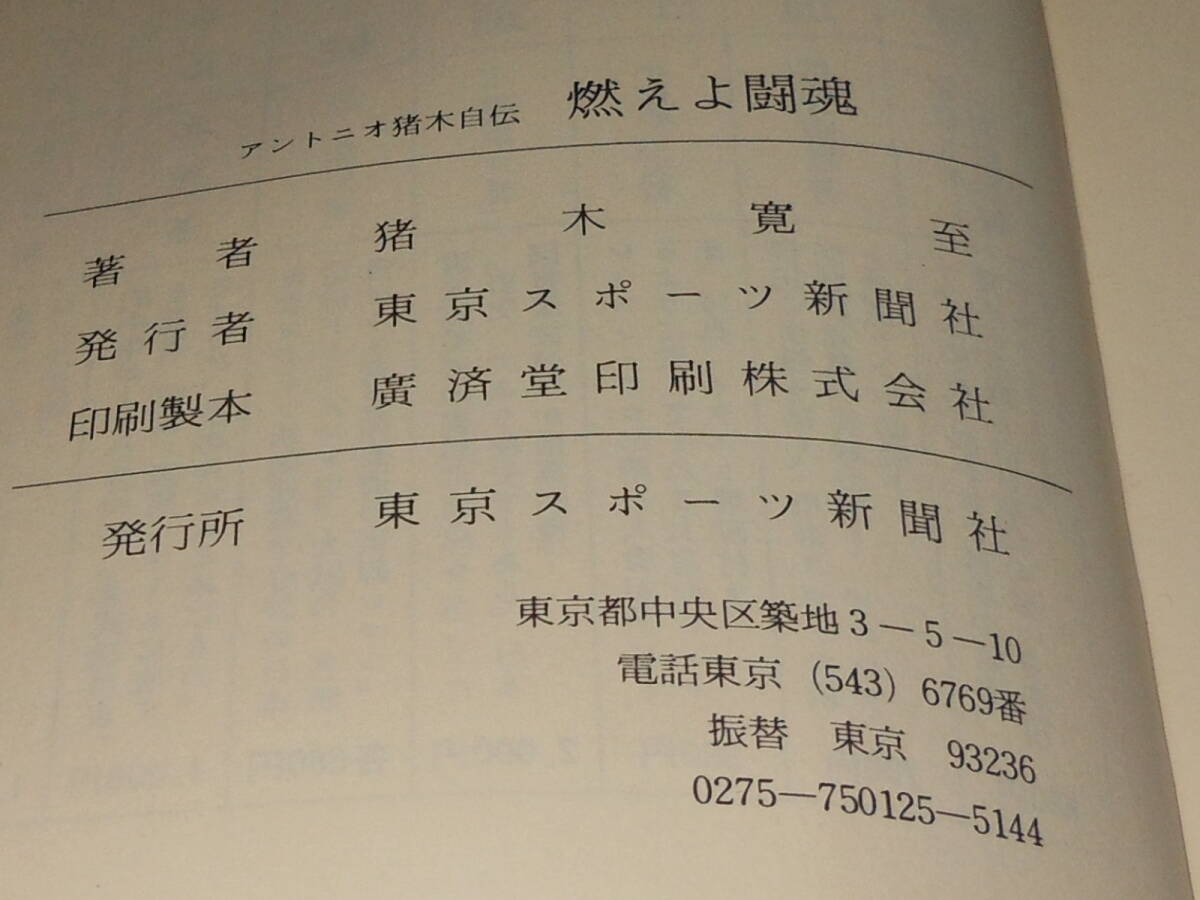 アントニオ猪木自伝 燃えよ闘魂
著者 猪木寛至
発行者 東京スポーツ新聞社
印刷製本 廣済堂印刷株式会社
発行所 東京スポーツ新聞社
東京都中央区築地3－5－10
電話東京 (543) 6769番
振替 東京 93236
0275―750125―5144